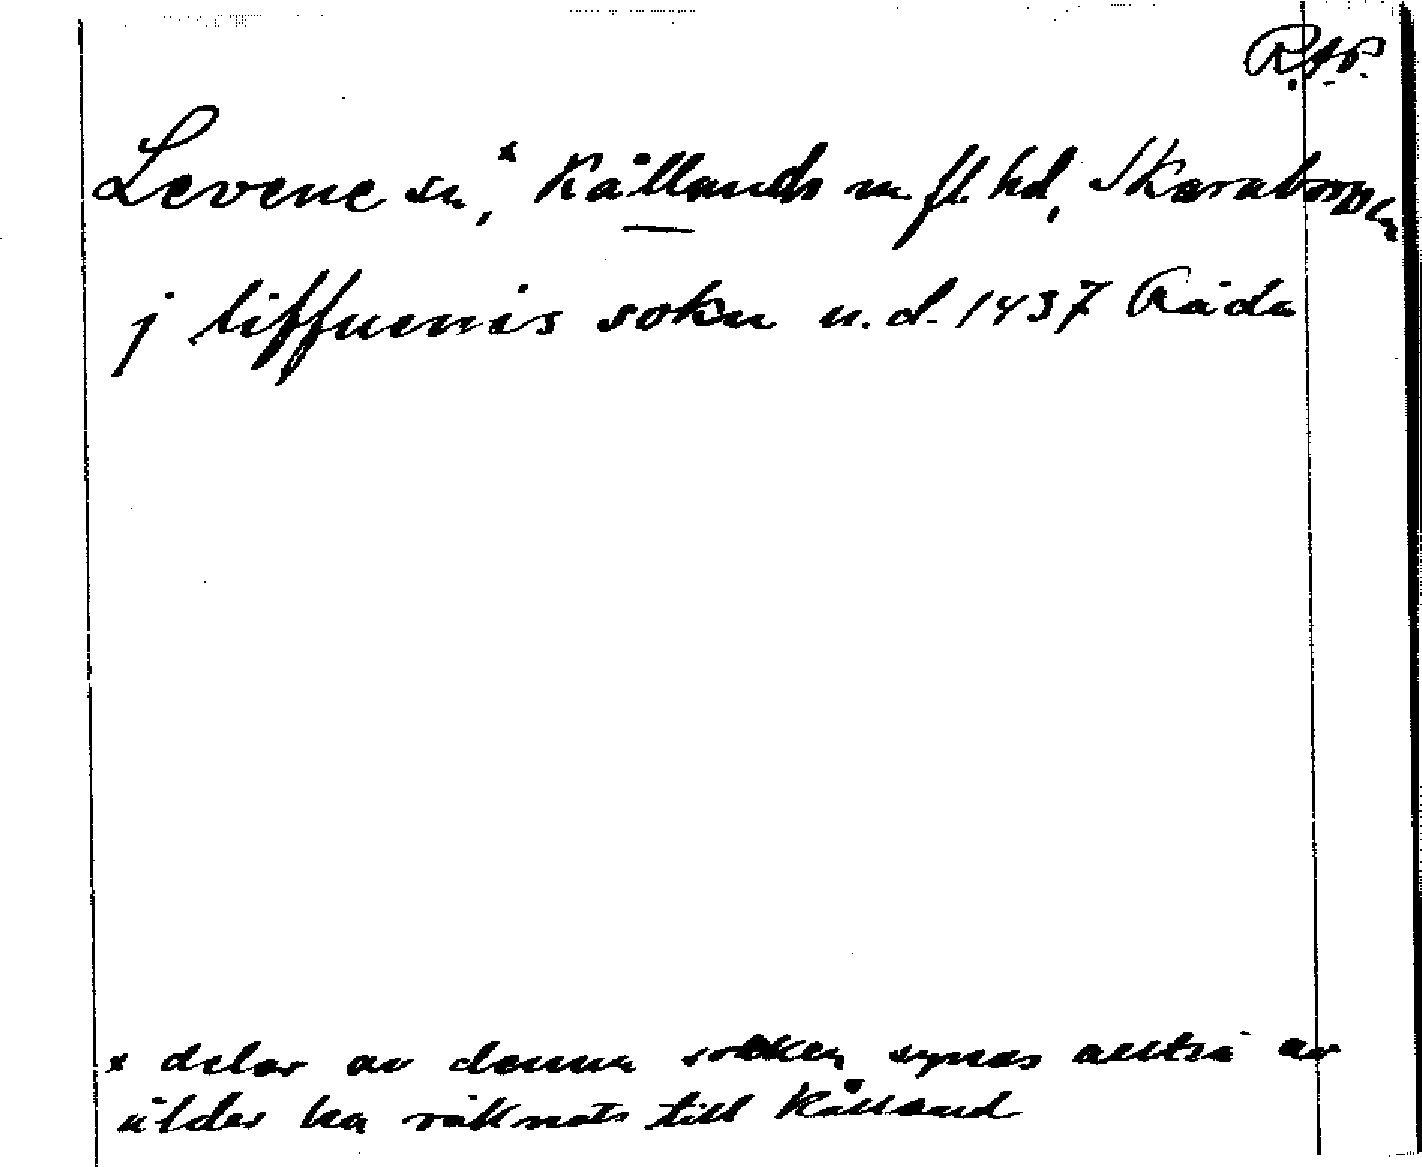 R.A.P.
Levene sn,ˣ Kållands m. fl. hd, Skaraborgs
j liffuenis sokn u.d. 1437 Råda
x delar av denna socken synas alltså av
ålder ha räknats till Kålland